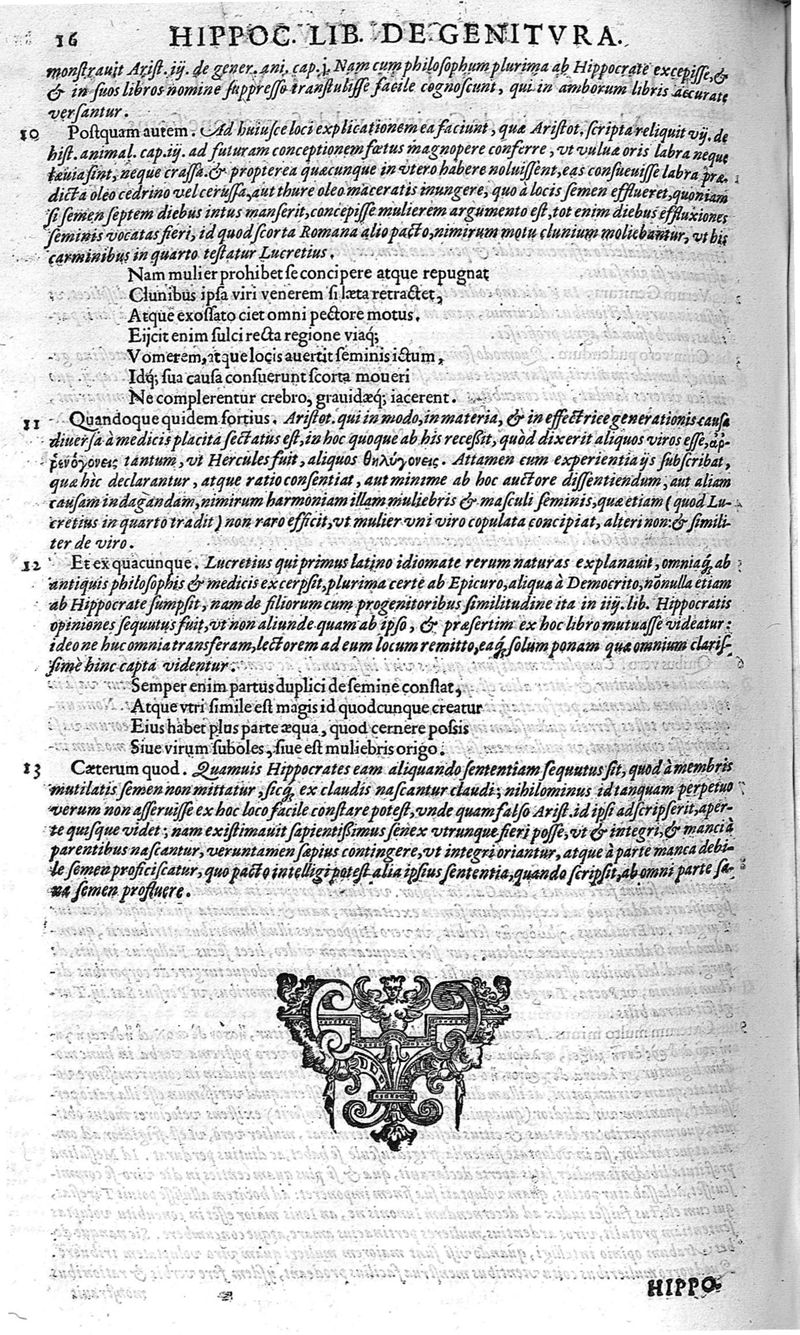 16 HIPPOC. LIB. DE GENITVRA.
monstrauit Arist. iij. de gener. ani. cap. j. Nam cum philosophum plurima ab Hippocrate excepisse, &
& in suos libros nomine suppresso transtulisse facile cognoscunt, qui in amborum libris accurate
versantur.
10 Postquam autem. Ad huiusce loci explicationem ea faciunt, quæ Aristot. scripta reliquit vij. de
hist. animal. cap. iij. ad futuram conceptionem fœtus magnopere conferre, vt vuluæ oris labra neque
læuia sint, neque crassa. & propterea quæcunque in vtero habere noluissent, eas consueuisse labra præ-
dicta oleo cedrino vel cerussa, aut thure oleo maceratis inungere, quo à locis semen efflueret, quoniam
si semen septem diebus intus manserit, concepisse mulierem argumento est, tot enim diebus effluxiones
seminis vocatas fieri, id quod scorta Romana alio pacto, nimirum motu clunium moliebantur, vt his
carminibus in quarto testatur Lucretius.
Nam mulier prohibet se concipere atque repugnat
Clunibus ipsa viri venerem si læta retractet,
Atque exossato ciet omni pectore motus.
Eijcit enim sulci recta regione viaq;
Vomerem, atque locis auertit seminis ictum,
Idq; sua causa consuerunt scorta moueri
Ne complerentur crebro, grauidæq; iacerent.
11 Quandoque quidem fortius. Aristot. qui in modo, in materia, & in effectrice generationis causa
diuersa à medicis placita sectatus est, in hoc quoque ab his recessit, quòd dixerit aliquos viros esse, ἀρ-
ῥενόγονεις tantum, vt Hercules fuit, aliquos θηλύγονεις. Attamen cum experientia ijs subscribat,
quæ hic declarantur, atque ratio consentiat, aut minime ab hoc auctore dissentiendum, aut aliam
causam indagandam, nimirum harmoniam illam muliebris & masculi seminis, quæ etiam (quod Lu-
cretius in quarto tradit) non raro efficit, vt mulier vni viro copulata concipiat, alteri non: & simili-
ter de viro.
12 Et ex quacunque. Lucretius qui primus latino idiomate rerum naturas explanauit, omniaq́; ab
antiquis philosophis & medicis excerpsit, plurima certe ab Epicuro, aliqua à Democrito, nonulla etiam
ab Hippocrate sumpsit, nam de filiorum cum progenitoribus similitudine ita in iiij. lib. Hippocratis
opiniones sequutus fuit, vt non aliunde quam ab ipso, & præsertim ex hoc libro mutuasse videatur:
ideo ne huc omnia transferam, lectorem ad eum locum remitto, eaq́; solum ponam quæ omnium claris-
sime hinc capta videntur.
Semper enim partus duplici de semine constat,
Atque vtri simile est magis id quodcunque creatur
Eius habet plus parte æqua, quod cernere possis
Siue virum suboles, siue est muliebris origo.
13 Cæterum quod. Quamuis Hippocrates eam aliquando sententiam sequutus sit, quod à membris
mutilatis semen non mittatur, sicq́; ex claudis nascantur claudi; nihilominus id tanquam perpetuo
verum non asseruisse ex hoc loco facile constare potest, vnde quam falso Arist. id ipsi adscripserit, aper-
te quisque videt; nam existimauit sapientissimus senex vtrunque fieri posse, vt & integri, & manci à
parentibus nascantur, veruntamen sæpius contingere, vt integri oriantur, atque à parte manca debi-
le semen proficiscatur, quo pacto intelligi potest alia ipsius sententia, quando scripsit, ab omni parte sa-
na semen profluere.
HIPPO-